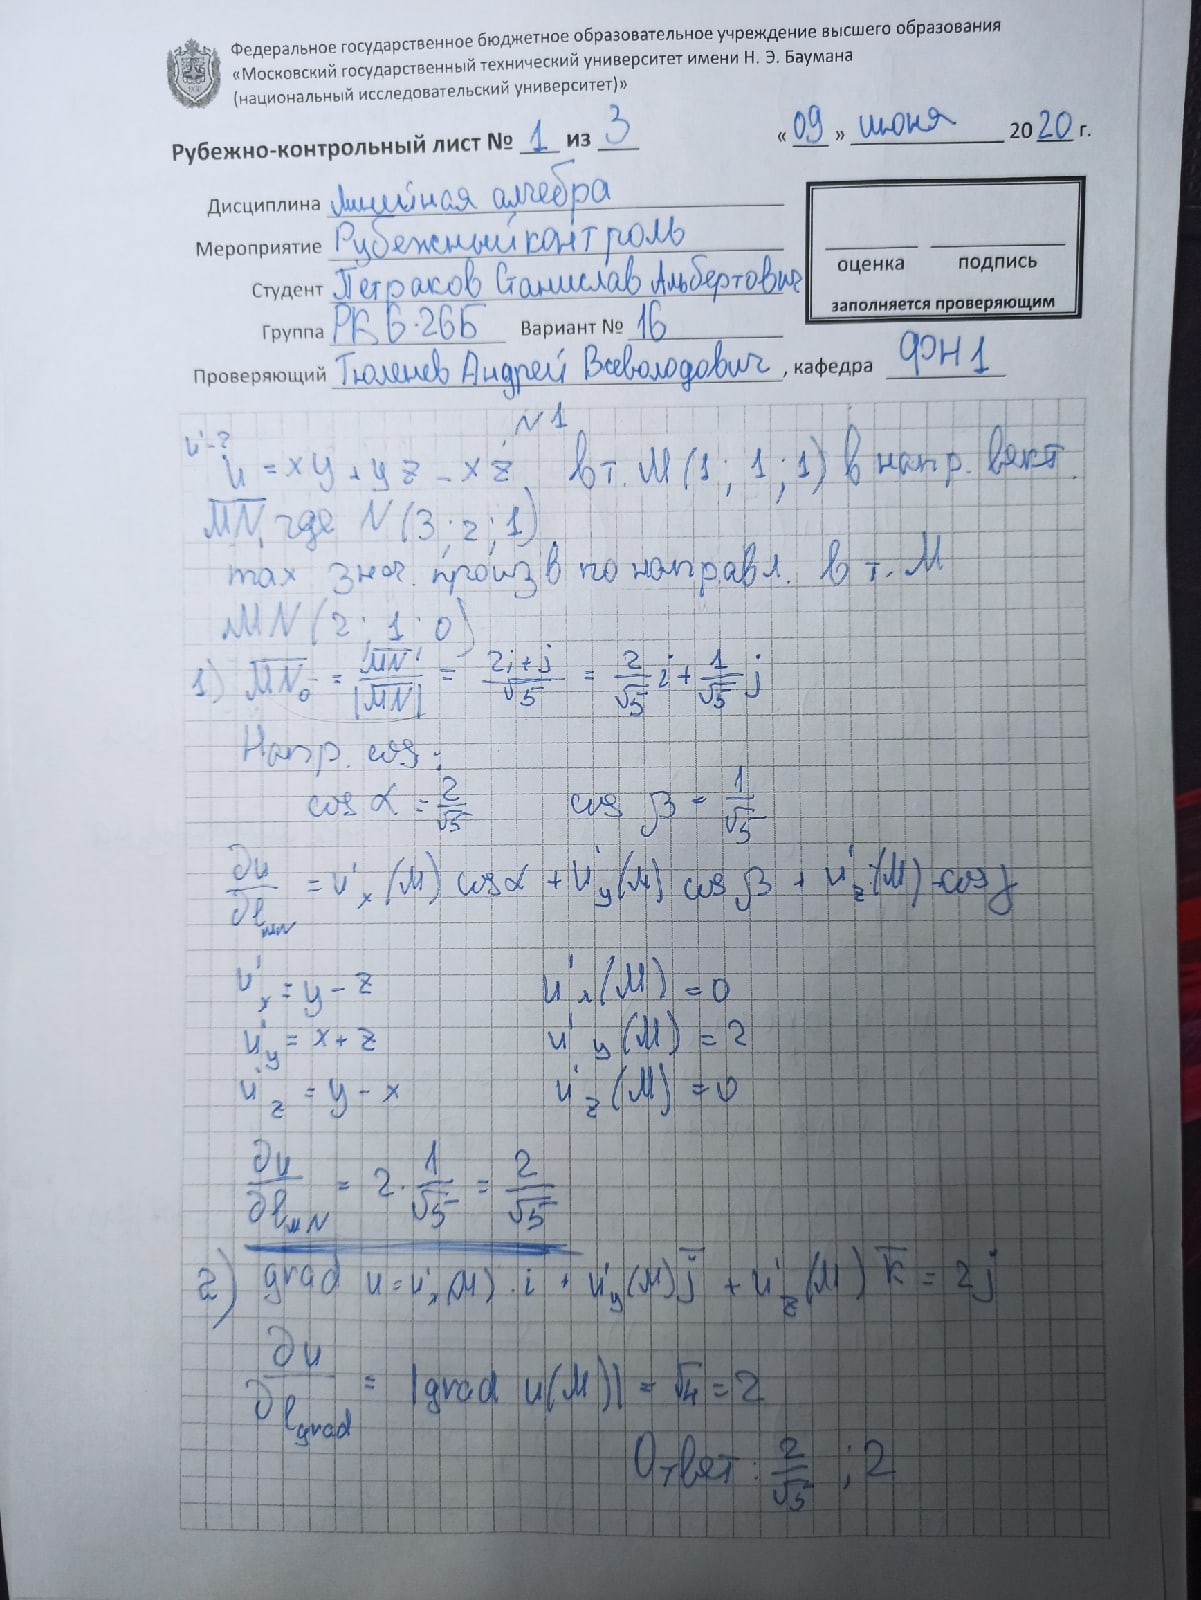 Федеральное государственное бюджетное образовательное учреждение высшего образования
«Московский государственный технический университет имени Н. Э. Баумана
(национальный исследовательский университет)»
Рубежно-контрольный лист № 1 из 3 « 09 » июня 2020 г.
Дисциплина Линейная алгебра
Мероприятие Рубежный контроль
Студент Петраков Станислав Альбертович
Группа РК6-26Б Вариант № 16
Проверяющий Тюленев Андрей Всеволодович, кафедра ФН1
оценка подпись
заполняется проверяющим
N 1
u'-?
u = xy + yz - xz в т. M (1; 1; 1) в напр. вект.
MN, где N (3; 2; 1)
max знач. произв по направл. в т. M
MN (2; 1; 0)
1) MN₀ = MN/|MN| = (2i + j)/√5 = 2/√5 i + 1/√5 j
Напр. cos:
cos α = 2/√5 cos β = 1/√5
∂u/∂l_MN = u'x (M) cos α + u'y (M) cos β + u'z (M) · cos γ
u'x = y - z u'x (M) = 0
u'y = x + z u'y (M) = 2
u'z = y - x u'z (M) = 0
∂u/∂l_MN = 2 · 1/√5 = 2/√5
2) grad u = u'x (M) · i + u'y (M) j + u'z (M) k = 2j
∂u/∂l_grad = |grad u(M)| = √4 = 2
Ответ: 2/√5 ; 2